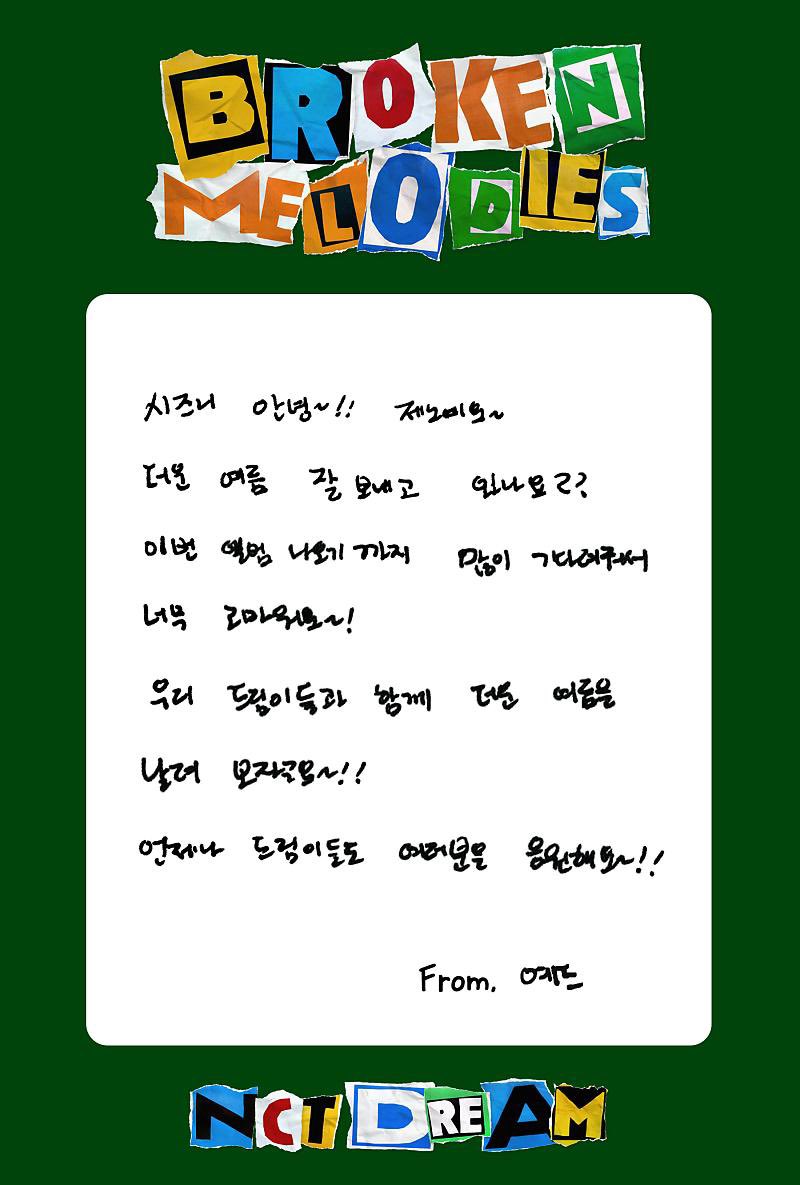 BROKEN
MELODIES
시즈니 안녕~!! 제노에요~
더운 여름 잘 보내고 있나요??
이번 앨범 나오기까지 많이 기다려줘서
너무 고마워요~!
우리 드림이들과 함께 더운 여름을
날려 보자고요~!!
언제나 드림이들도 여러분을 응원해요~!!
From.
NCT DREAM